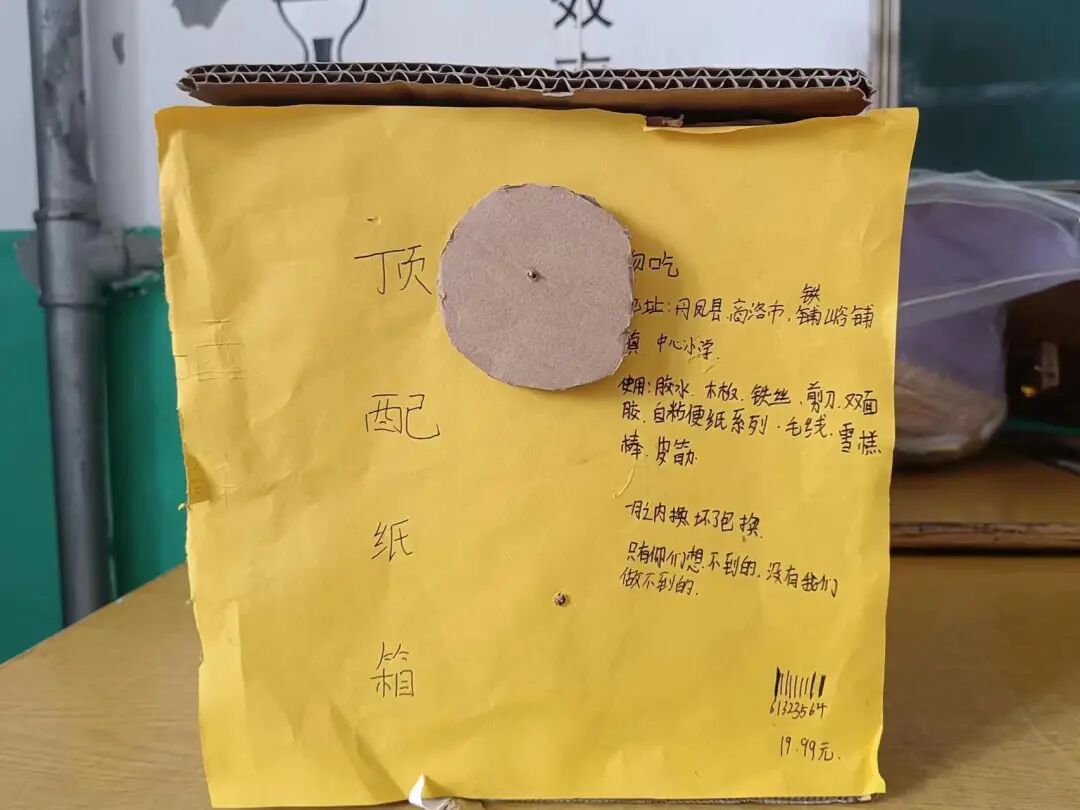 效
顶
配
纸
箱
勿吃
地址：丹凤县.商洛市.铁
铺山峪铺
镇.中心小学.
使用：胶水.木棍.铁丝.剪刀.双面
胶.自粘便纸系列.毛线.雪糕
棒.皮筋.
一月之内换.坏了包换.
只有你们想不到的.没有我们
做不到的.
61323564
19.99元.